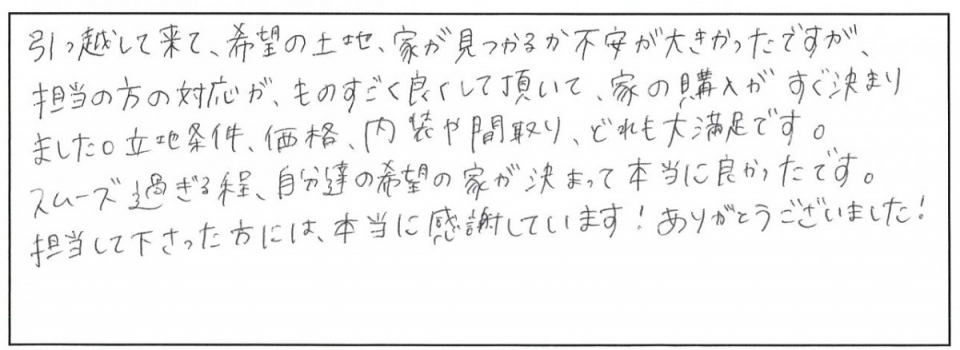 引っ越して来て、希望の土地、家が見つかるか不安が大きかったですが、
担当の方の対応が、ものすごく良くして頂いて、家の購入がすぐ決まり
ました。立地条件、価格、内装や間取り、どれも大満足です。
スムーズ過ぎる程、自分達の希望の家が決まって本当に良かったです。
担当して下さった方には、本当に感謝しています！ありがとうございました！